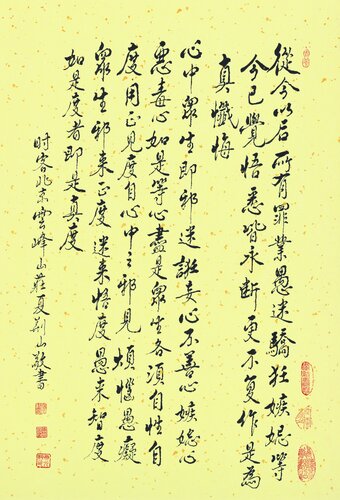 從今以后所有罪業愚迷驕狂嫉妒等
今已覺悟悉皆永断更不复作是為
真懺悔
心中眾生即邪迷誑妄心不善心嫉妒心
惡毒心如是等心盡是眾生各須自性自
度用正見度自心中之邪見煩惱愚癡
眾生邪来正度迷来悟度愚来智度
如是度者即是真度
时客北京雲峰山莊夏荊山敬書